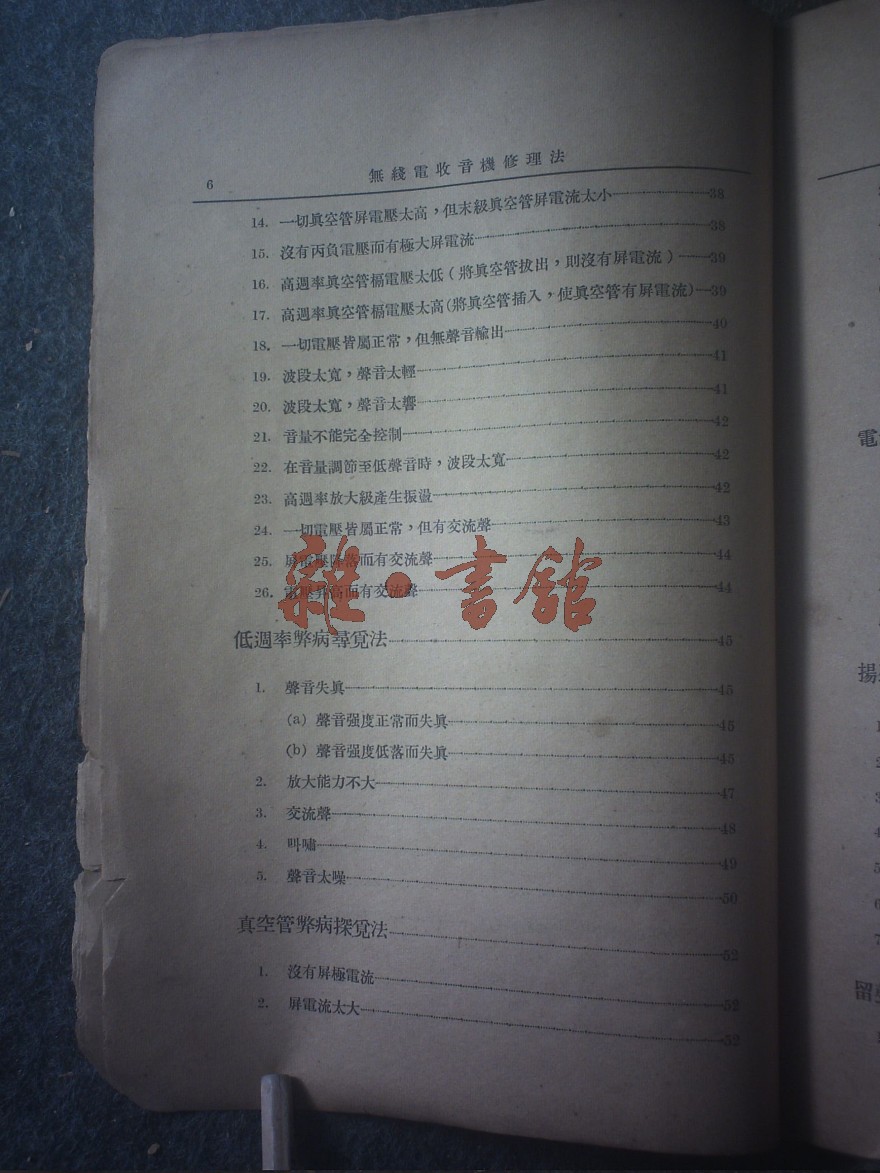 6
無綫電收音機修理法
14. 一切眞空管屏電壓太高，但末級眞空管屏電流太小 38
15. 沒有丙負電壓而有極大屏電流 38
16. 高週率眞空管槅電壓太低（將眞空管拔出，則沒有屏電流） 39
17. 高週率眞空管槅電壓太高(將眞空管插入，使眞空管有屏電流) 39
18. 一切電壓皆屬正常，但無聲音輸出 40
19. 波段太寬，聲音太輕 41
20. 波段太寬，聲音太響 41
21. 音量不能完全控制 42
22. 在音量調節至低聲音時，波段太寬 42
23. 高週率放大級產生振盪 42
24. 一切電壓皆屬正常，但有交流聲 43
25. 屏電壓降落而有交流聲 44
26. 電壓昇高而有交流聲 44
雜·書館
低週率弊病尋覓法 45
1. 聲音失眞 45
(a) 聲音强度正常而失眞 45
(b) 聲音强度低落而失眞 45
2. 放大能力不大 47
3. 交流聲 48
4. 叫嘯 49
5. 聲音太噪 50
真空管弊病探覓法 52
1. 沒有屏極電流 52
2. 屏電流太大 52
電
揚
留